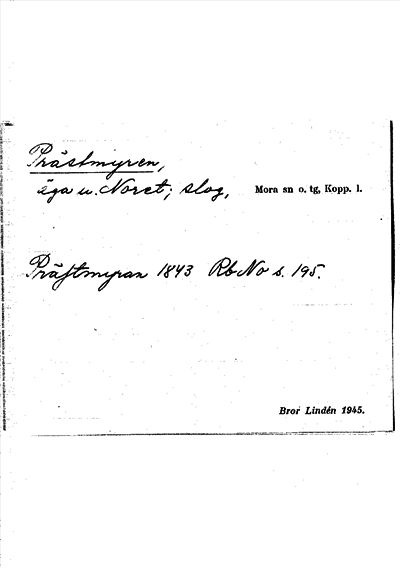 Prästmyren,
äga u. Noret; slog, Mora sn o. tg, Kopp. l.
Prästmyran 1843 Rb No s. 195.
Bror Lindén 1945.